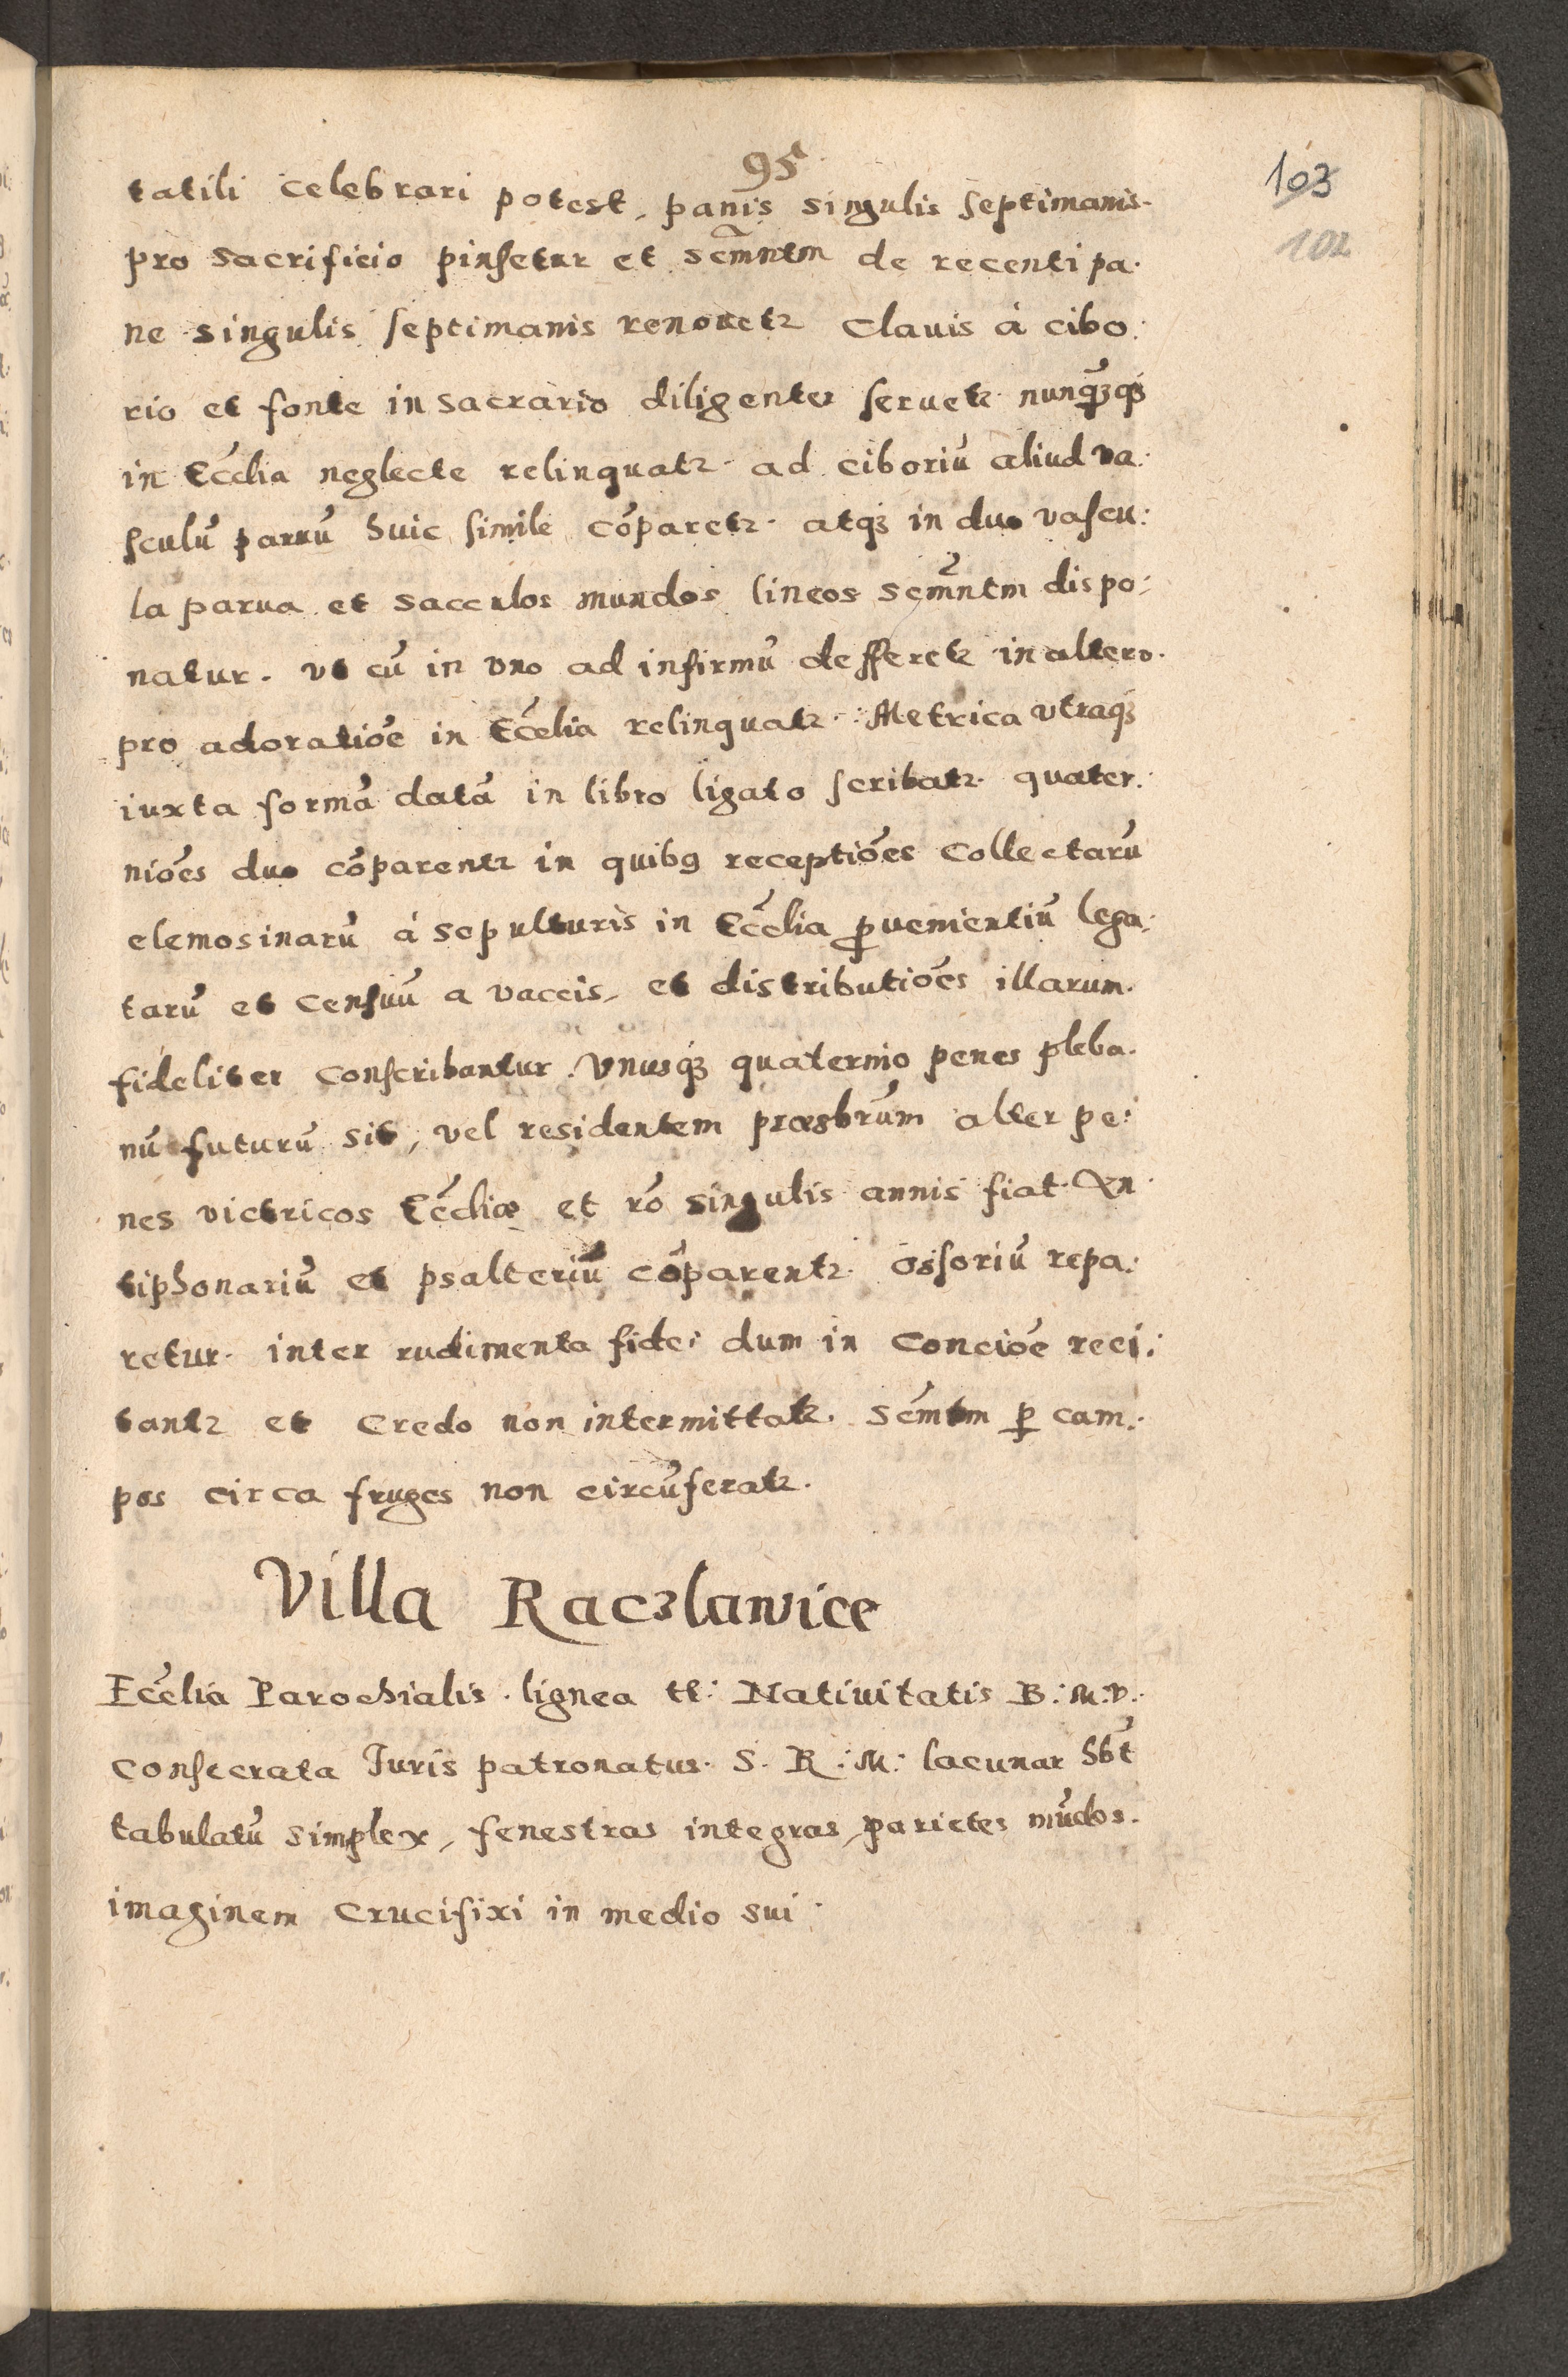 95
103
102
tatili celebrari potest, panis singulis septimanis
pro sacrificio pinsetur et scm̃ntm de recenti pa:
ne singulis septimanis renouetr Clauis á cibo:
rio et fonte in sacrario diligenter seruetr nunq̃ʒqʒ
in Ecc̃lia neglecte relinquatr ad ciboriũ aliud va:
sculũ paruũ huic simile cõparetr. atqʒ in duo vascu:
la parua et sacculos mundos lineos scm̃ntm dispo:
natur. vt cũ in vno ad infirmũ defferetr in altero
pro adoratiõe in Ecc̃lia relinquatr. Metrica vtraqʒ
iuxta formã datã in libro ligato scribatr. quater:
niões duo cõparentr in quibꝯ receptiões Collectarũ
elemosinarũ á sepulturis in Ecc̃lia ꝓuenientiũ lega:
tarũ et censuũ a vaccis, et distributiões illarum.
fideliter conscribantur. Vnusqʒ quaternio penes pleba:
nũ futurũ sit, vel residentem præsbrũm alter pe:
nes victricos Ecc̃liæ et rõ singulis annis fiat. An
tiphonariũ et psalteriũ cõparentr. ossoriũ repa:
retur. inter rudimenta fidei dum in Conciõe reci:
tantr et Credo non intermittatr. Scm̃tm ꝑ cam:
pos circa fruges non circũferatr.
Villa Raczlawice
Ecc̃lia Parochialis. lignea tt: Natiuitatis B: M: V.
consecrata Iuris patronatus. S. R: M: lacunar hb̃t
tabulatũ simplex, fenestras integras, parietes mũdos.
imaginem Crucifixi in medio sui